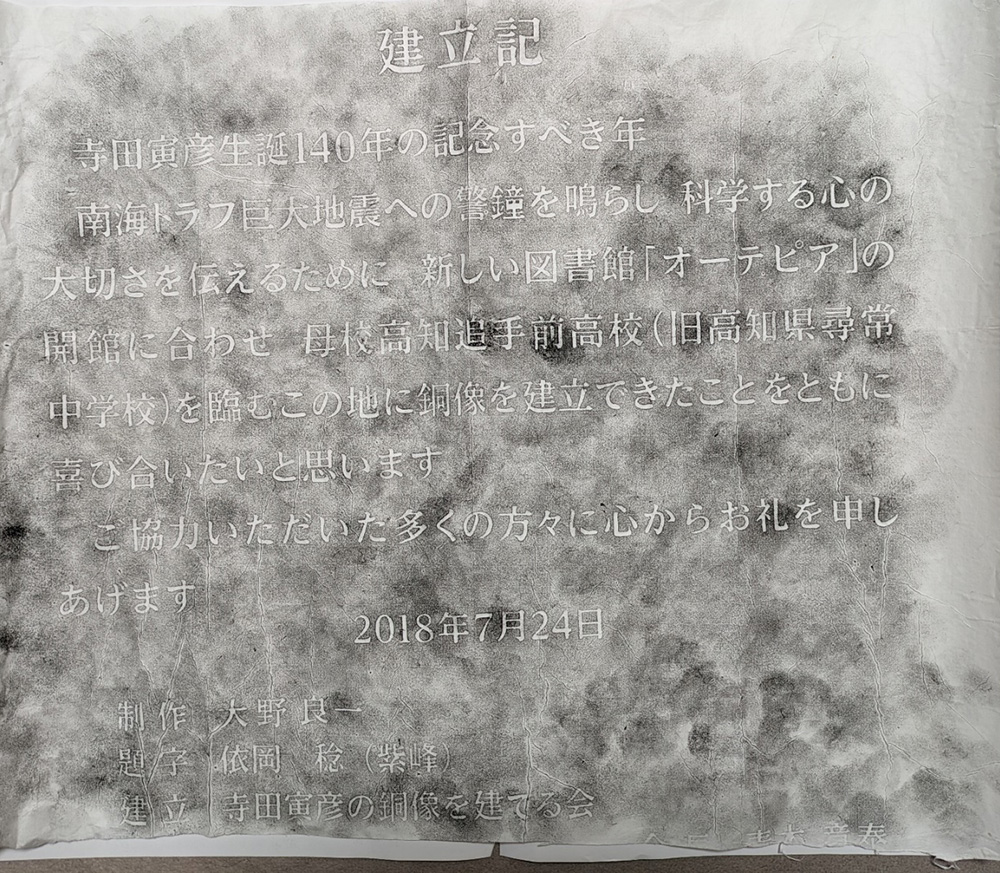 建立記
寺田寅彦生誕140年の記念すべき年
南海トラフ巨大地震への警鐘を鳴らし 科学する心の
大切さを伝えるために 新しい図書館「オーテピア」の
開館に合わせ 母校高知追手前高校(旧高知県尋常
中学校)を臨むこの地に銅像を建立できたことをともに
喜び合いたいと思います
ご協力いただいた多くの方々に心からお礼を申し
あげます
2018年7月24日
制作 大野良一
題字 依岡 稔(紫峰)
建立 寺田寅彦の銅像を建てる会